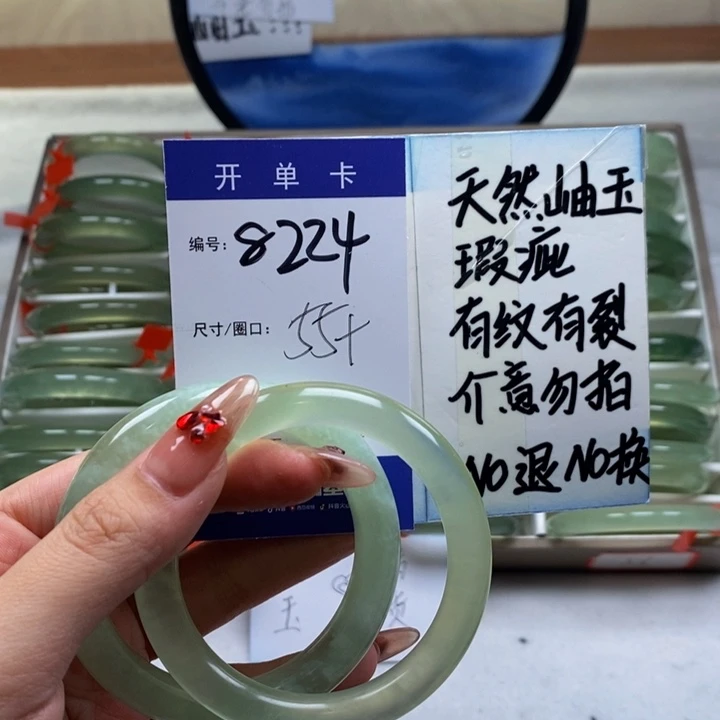 开单卡
编号: 8224
尺寸/圈口: 55+
天然岫玉
瑕疵
有纹有裂
介意勿拍
NO退NO换
玉